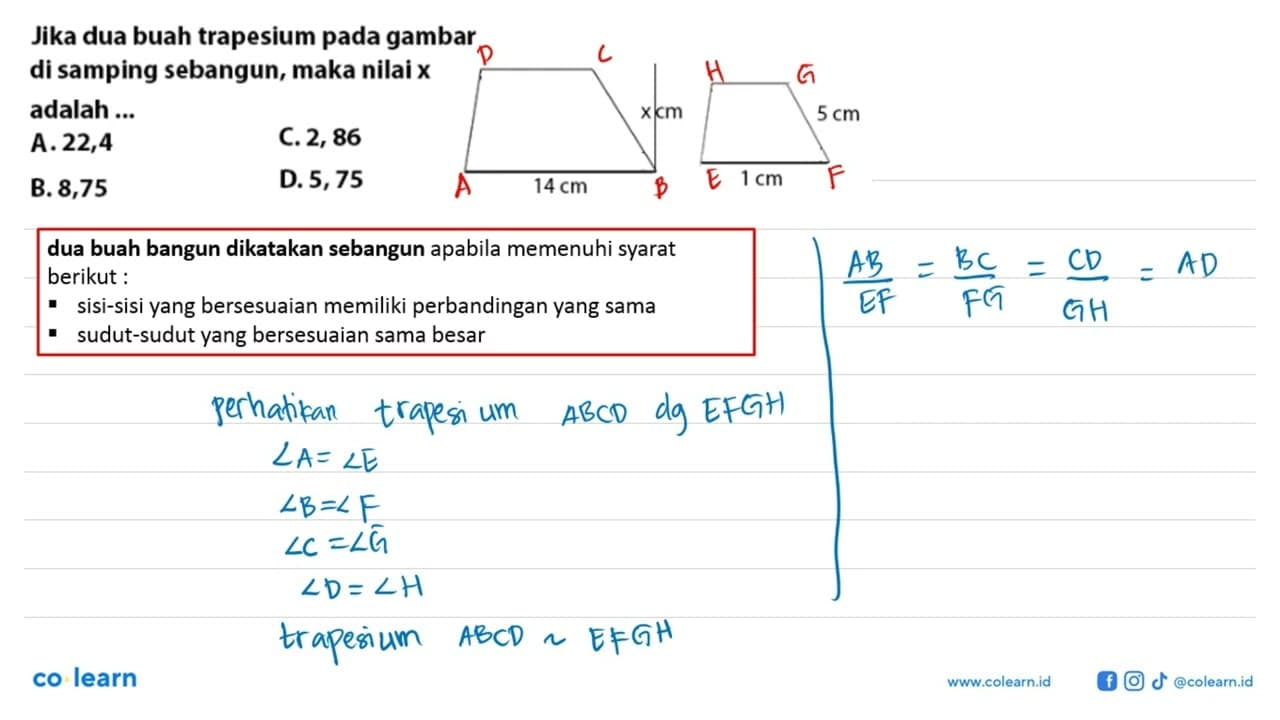 Jika dua buah trapesium pada gambar
di samping sebangun, maka nilai x
adalah ...
A. 22,4
C. 2, 86
B. 8,75
D. 5, 75
D
C
x cm
A
14 cm
B
H
G
5 cm
E
1 cm
F
dua buah bangun dikatakan sebangun apabila memenuhi syarat
berikut :
▪ sisi-sisi yang bersesuaian memiliki perbandingan yang sama
▪ sudut-sudut yang bersesuaian sama besar
AB/EF = BC/FG = CD/GH = AD
perhatikan trapesium ABCD dg EFGH
∠A = ∠E
∠B = ∠F
∠C = ∠G
∠D = ∠H
trapesium ABCD ~ EFGH
co learn
www.colearn.id
@colearn.id